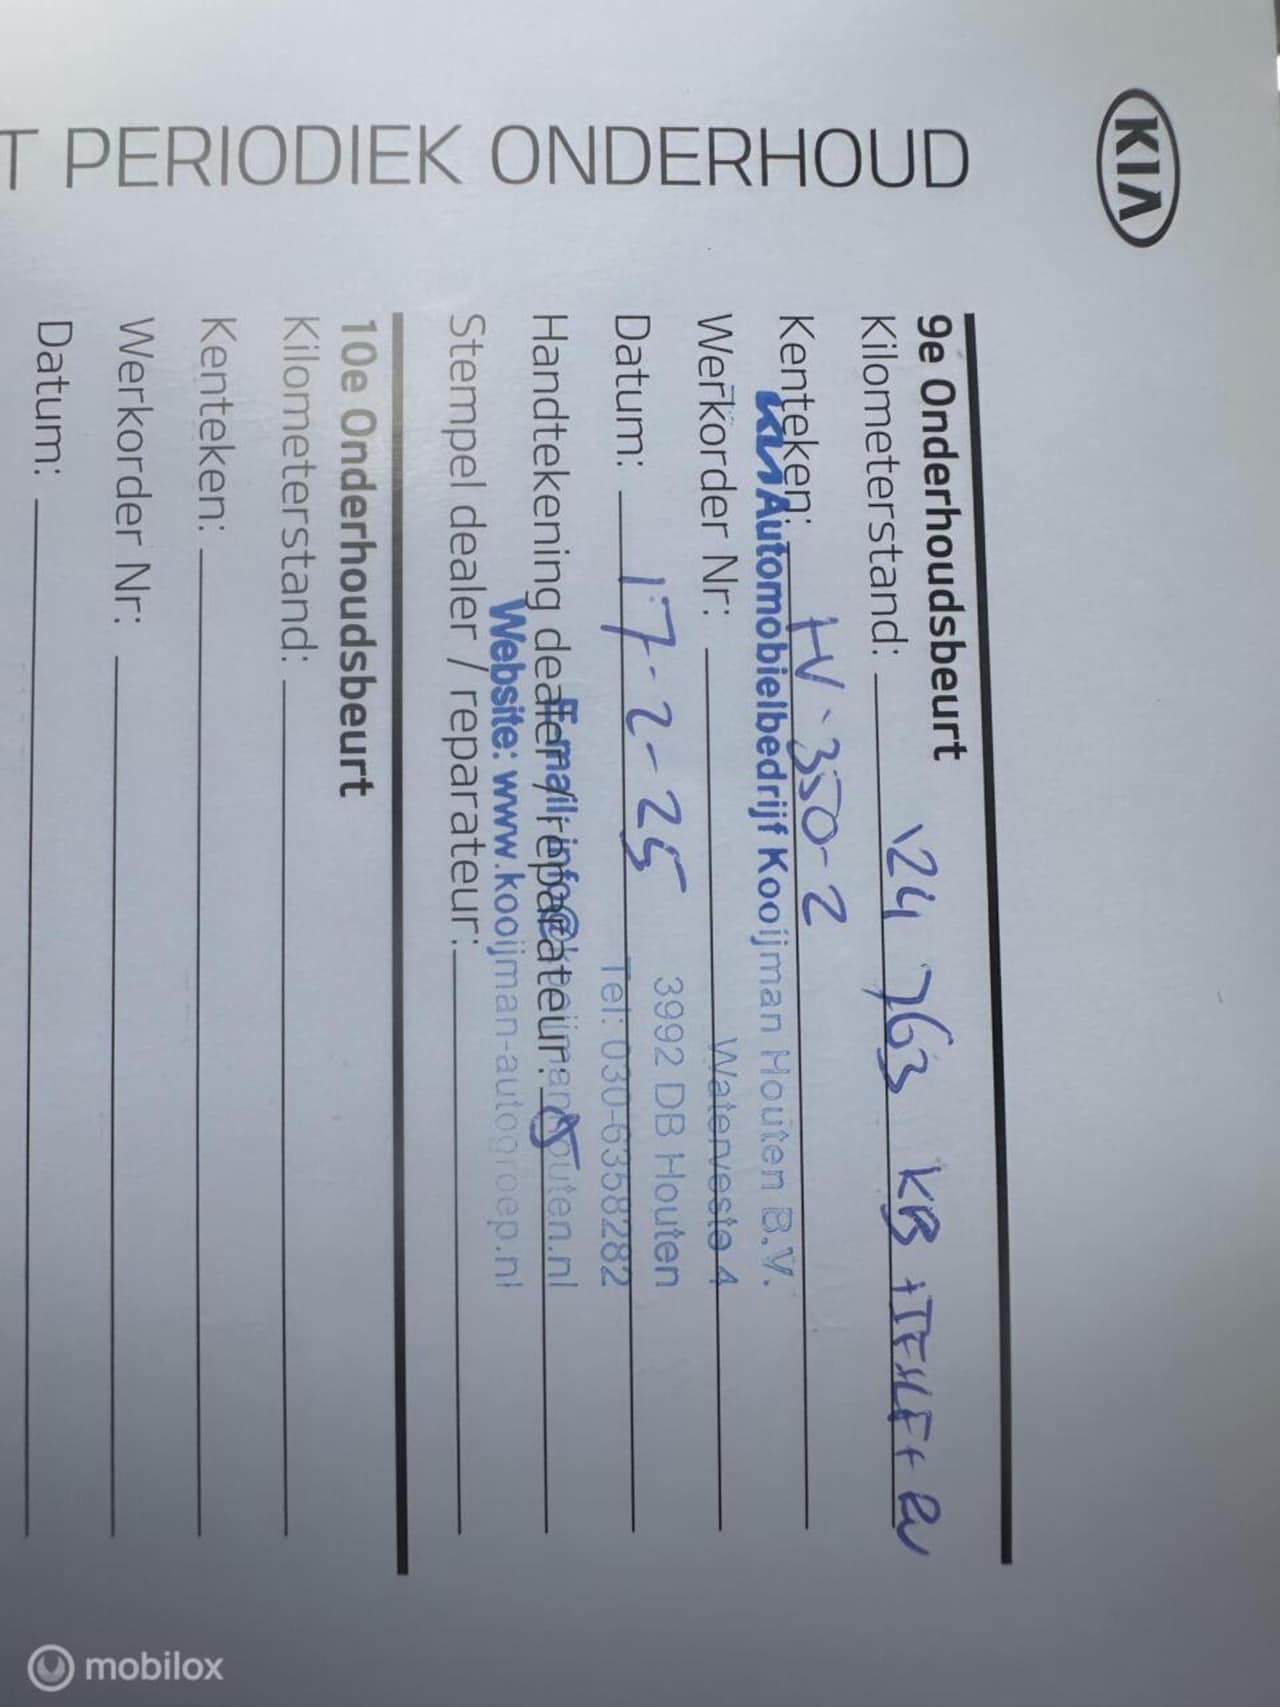 KIA
T PERIODIEK ONDERHOUD
9e Onderhoudsbeurt
Kilometerstand: 124 763 KB +
Kenteken: TV-350-Z
Automobielbedrijf Kooijman Houten B.V.
Werkorder Nr:
Waterveste 4
3992 DB Houten
Datum: 17-2-25
Tel: 030-6358282
Handtekening dealer / reparateur:
E-mail: info@kooijmanhouten.nl
Website: www.kooijman-autogroep.nl
Stempel dealer / reparateur:
10e Onderhoudsbeurt
Kilometerstand:
Kenteken:
Werkorder Nr:
Datum:
mobilox